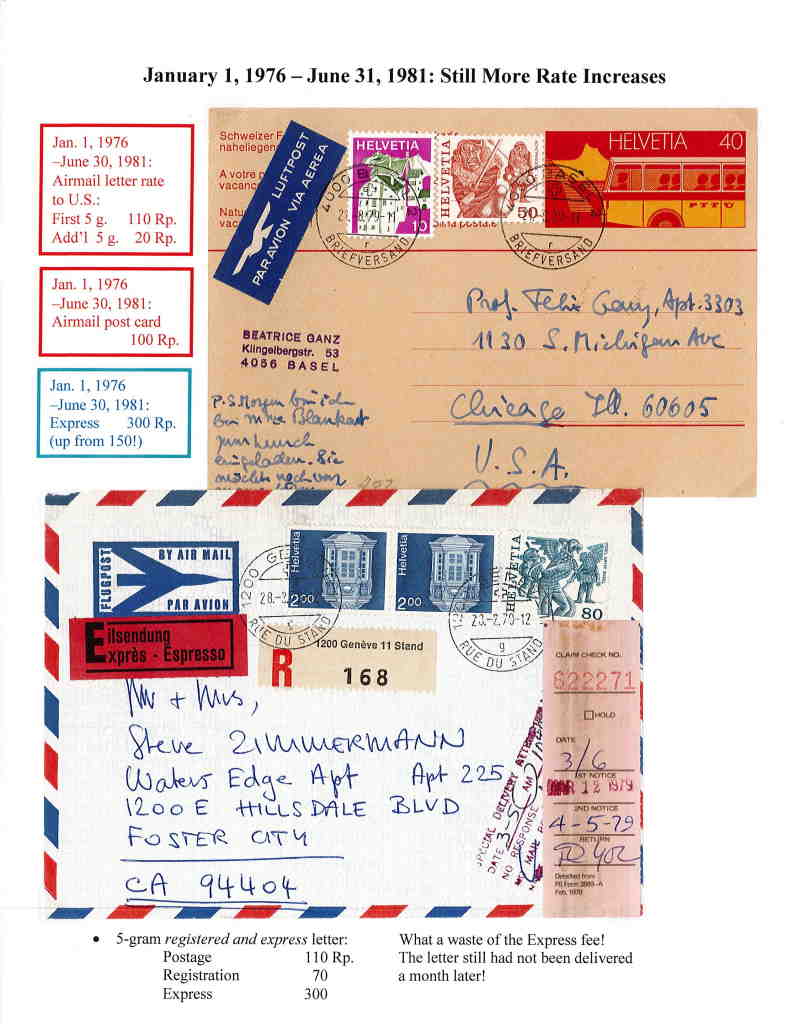 January 1, 1976 – June 31, 1981: Still More Rate Increases
Jan. 1, 1976
–June 30, 1981:
Airmail letter rate
to U.S.:
First 5 g. 110 Rp.
Add'l 5 g. 20 Rp.
Jan. 1, 1976
–June 30, 1981:
Airmail post card
100 Rp.
Jan. 1, 1976
–June 30, 1981:
Express 300 Rp.
(up from 150!)
Schweizer
nahelieger
A votre
vacanc
Natu
vac
LUFTPOST
PAR AVION VIA AEREA
HELVETIA
10
HELVETIA
50
HELVETIA 40
PTT
4000 BASEL 2
BRIEFVERSAND
BRIEFVERSAND
BEATRICE GANZ
Klingelbergstr. 53
4056 BASEL
Prof. Felix Ganz, Apt. 3303
1130 S. Michigan Ave
Chicago Ill. 60605
U.S.A.
P.S. Morgen bin ich
Blankart
eingeladen. Sie
FLUGPOST
BY AIR MAIL
PAR AVION
Helvetia
2.00
Helvetia
2.00
HELVETIA
80
1200
28.-2.
RUE DU STAND
28.-2.79-12
RUE DU STAND
g
Eilsendung
Exprès - Espresso
R
1200 Genève 11 Stand
168
Mr + Mrs,
Steve ZIMMERMANN
Waters Edge Apt Apt 225
1200 E HILLSDALE BLVD
FOSTER CITY
CA 94404
SPECIAL DELIVERY ATTEMPTED
DATE 3-5
AM
NO RESPONSE
CLAIM CHECK NO.
622271
HOLD
DATE
3/6
1ST NOTICE
MAR 12 1979
2ND NOTICE
4-5-79
RETURN
Detached from
PS Form 3849-A
Feb. 1978
• 5-gram registered and express letter:
Postage 110 Rp.
Registration 70
Express 300
What a waste of the Express fee!
The letter still had not been delivered
a month later!